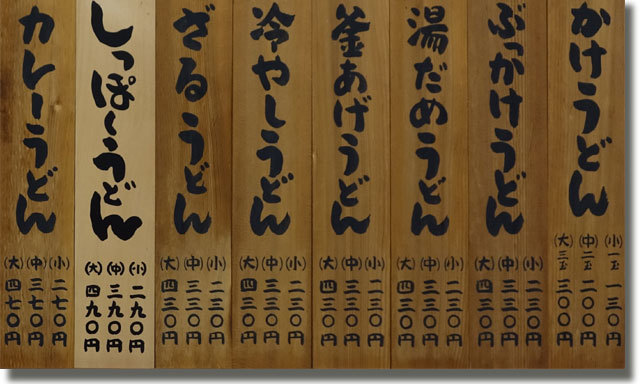 かけうどん
(小)一玉 一三〇円
(中)二玉 二〇〇円
(大)三玉 三〇〇円
ぶっかけうどん
(小)二三〇円
(中)三三〇円
(大)四三〇円
湯だめうどん
(小)二三〇円
(中)三三〇円
(大)四三〇円
釜あげうどん
(小)二三〇円
(中)三三〇円
(大)四三〇円
冷やしうどん
(小)二三〇円
(中)三三〇円
(大)四三〇円
ざるうどん
(小)二三〇円
(中)三三〇円
(大)四三〇円
しっぽくうどん
(小)二九〇円
(中)三九〇円
(大)四九〇円
カレーうどん
(小)二七〇円
(中)三七〇円
(大)四七〇円